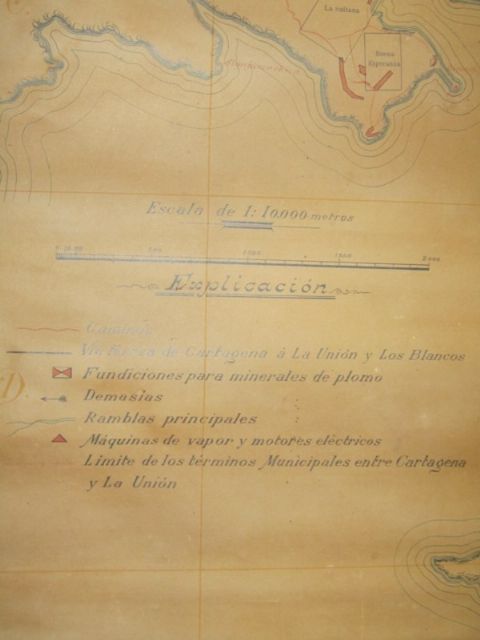 La Sultana
Buena
Esperanza
Escala de 1:10.000 metros
500 1000 1500 2000
Explicación
Caminos
Via férrea de Cartagena á La Unión y Los Blancos
Fundiciones para minerales de plomo
D.
Demasías
Ramblas principales
Máquinas de vapor y motores eléctricos
Límite de los términos Municipales entre Cartagena
y La Unión